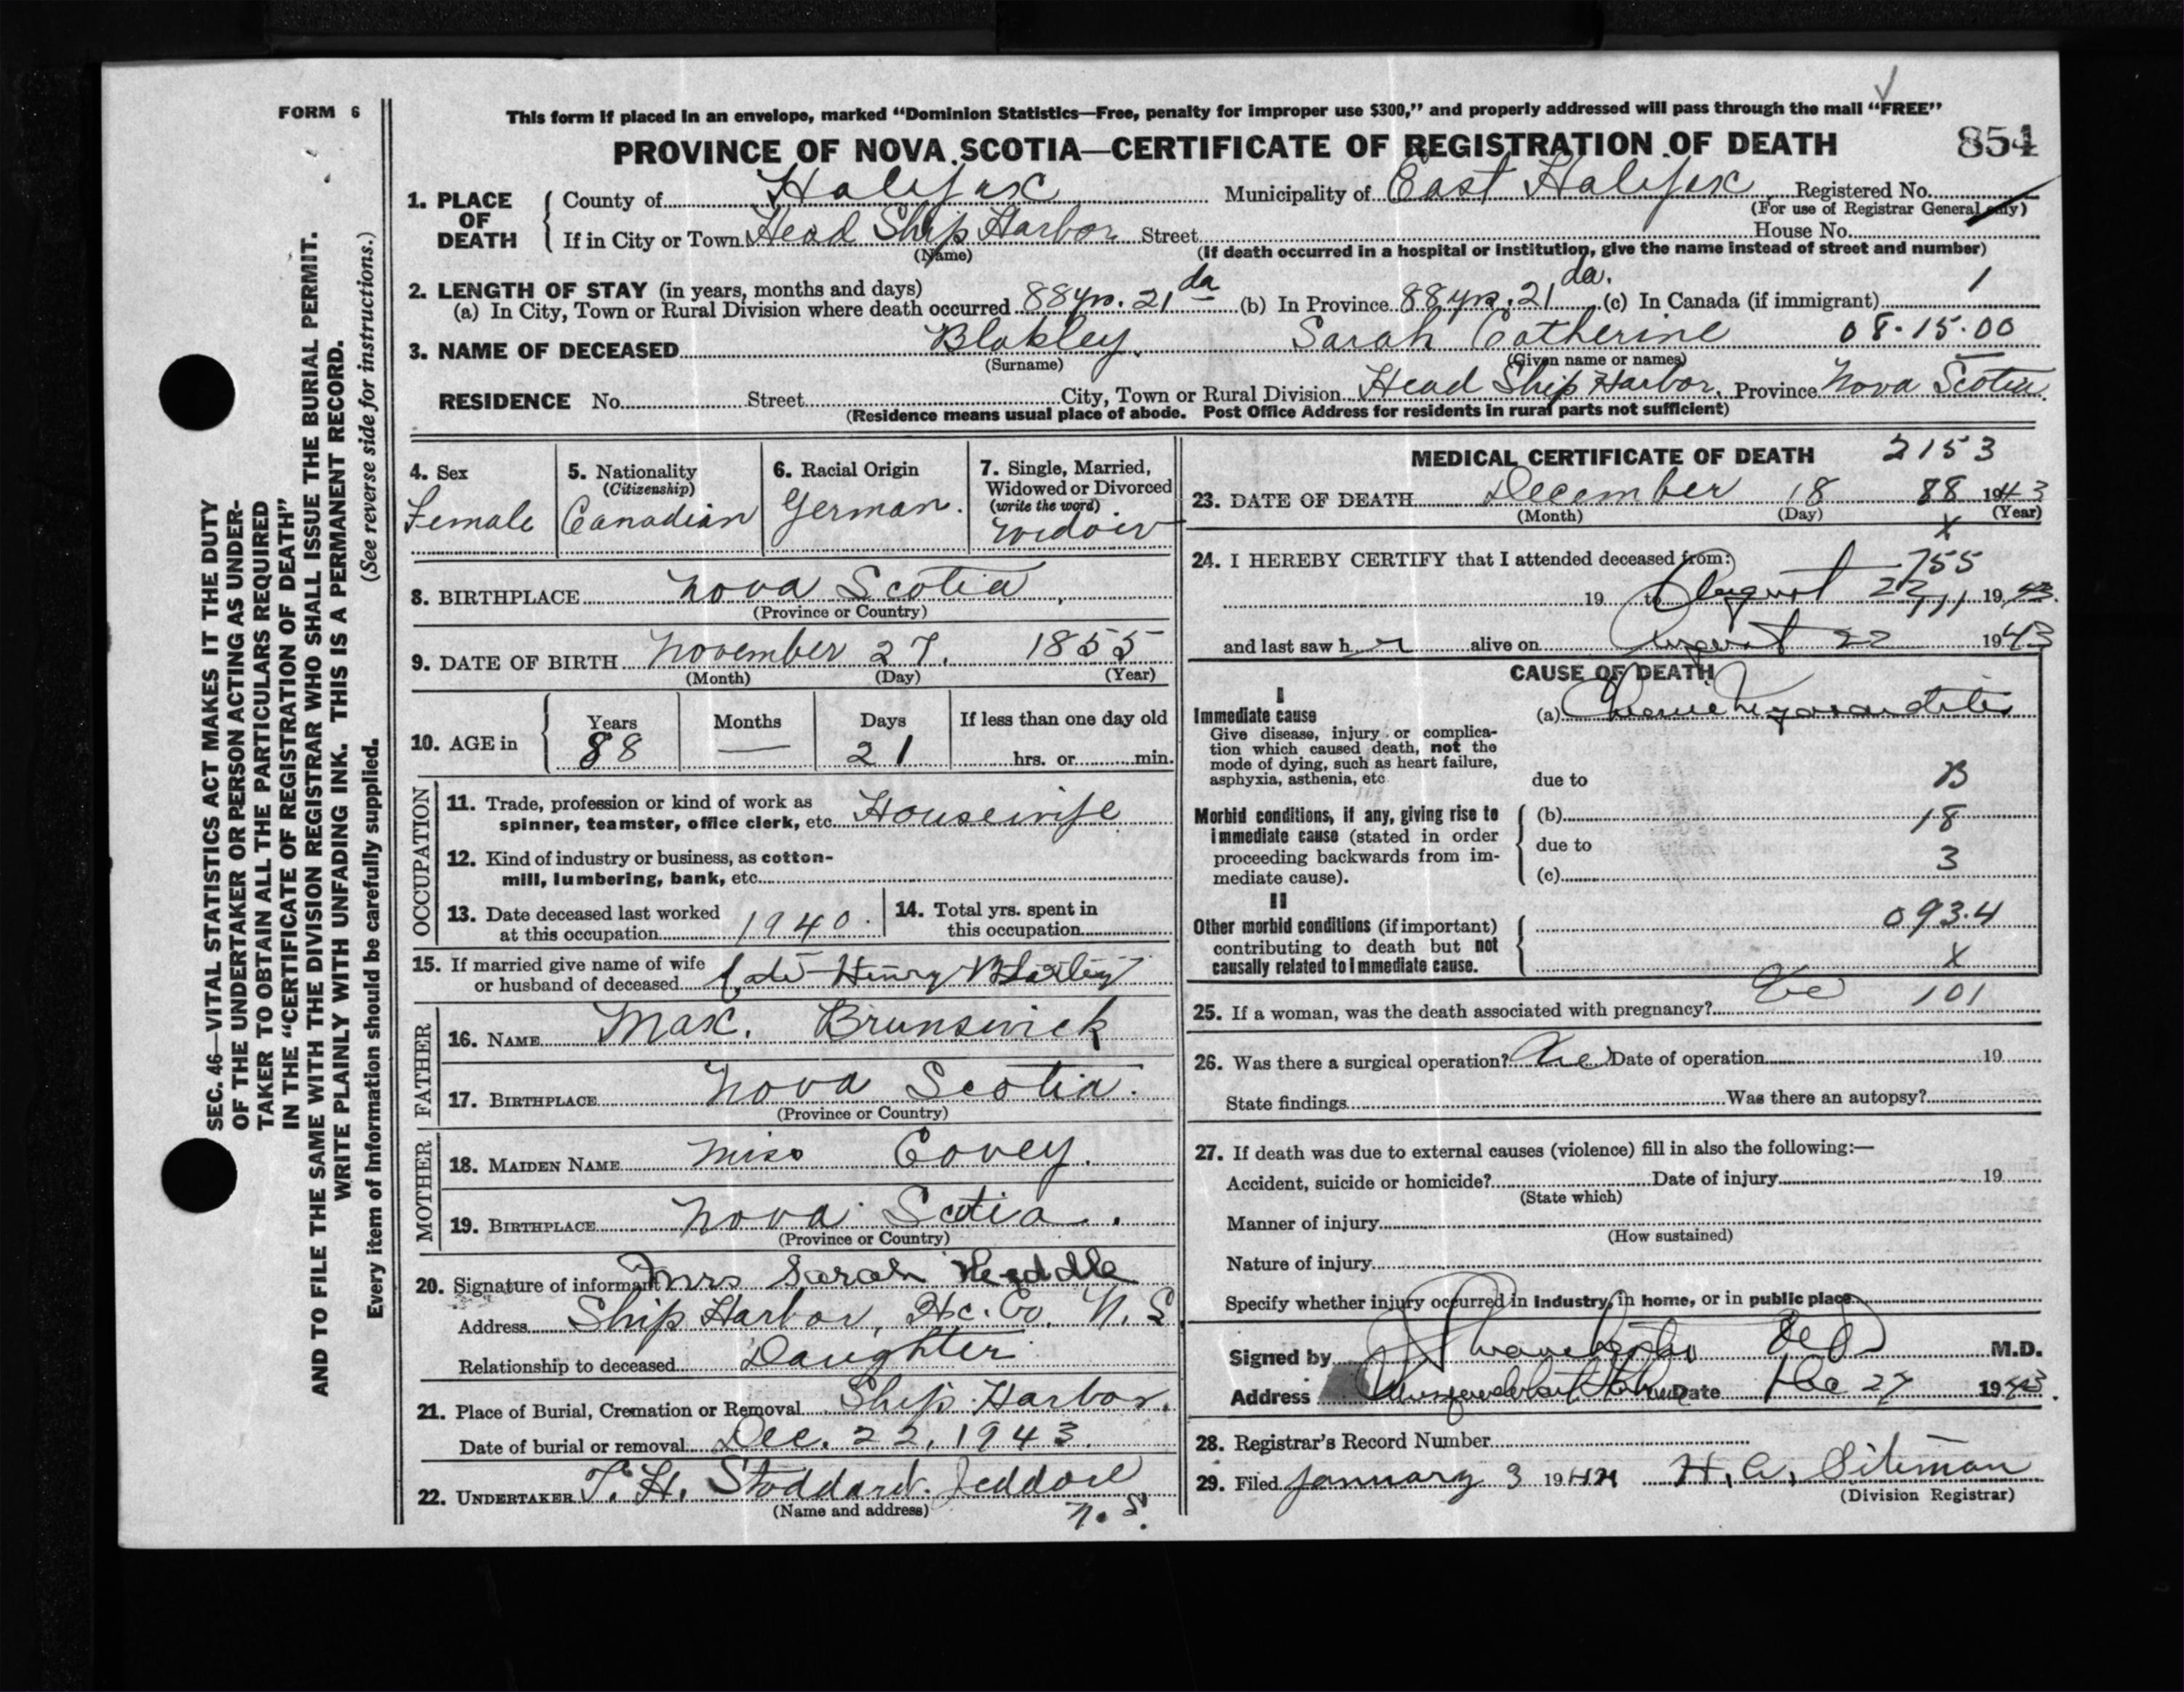 FORM 6
This form if placed in an envelope, marked “Dominion Statistics—Free, penalty for improper use $300,” and properly addressed will pass through the mail “FREE”
PROVINCE OF NOVA SCOTIA—CERTIFICATE OF REGISTRATION OF DEATH 854
1. PLACE OF DEATH
County of Halifax Municipality of East Halifax Registered No.
(For use of Registrar General only)
If in City or Town Head Ship Harbor Street House No.
(Name) (If death occurred in a hospital or institution, give the name instead of street and number)
2. LENGTH OF STAY (in years, months and days)
(a) In City, Town or Rural Division where death occurred 88 yrs. 21 da (b) In Province 88 yrs. 21 da. (c) In Canada (if immigrant) 1
3. NAME OF DECEASED Blakley. Sarah Catherine 08-15-00
(Surname) (Given name or names)
RESIDENCE No. Street City, Town or Rural Division Head Ship Harbor, Province Nova Scotia.
(Residence means usual place of abode. Post Office Address for residents in rural parts not sufficient)
4. Sex
Female
5. Nationality
(Citizenship)
Canadian
6. Racial Origin
German.
7. Single, Married,
Widowed or Divorced
(write the word)
Widow
8. BIRTHPLACE Nova Scotia,
(Province or Country)
9. DATE OF BIRTH November 27, 1855
(Month) (Day) (Year)
10. AGE in
Years Months Days If less than one day old
88 — 21 hrs. or min.
OCCUPATION
11. Trade, profession or kind of work as
spinner, teamster, office clerk, etc. Housewife
12. Kind of industry or business, as cotton-
mill, lumbering, bank, etc.
13. Date deceased last worked
at this occupation 1940.
14. Total yrs. spent in
this occupation
15. If married give name of wife
or husband of deceased Henry
FATHER
16. NAME Max. Brunswick
17. BIRTHPLACE Nova Scotia.
(Province or Country)
MOTHER
18. MAIDEN NAME Miss Covey.
19. BIRTHPLACE Nova Scotia.
(Province or Country)
20. Signature of informant Mrs Sarah
Address Ship Harbor, Hx. Co. N. S.
Relationship to deceased Daughter
21. Place of Burial, Cremation or Removal Ship Harbor.
Date of burial or removal Dec. 22, 1943.
22. UNDERTAKER T. H. Stoddard. Jeddore
(Name and address) N. S.
MEDICAL CERTIFICATE OF DEATH 2153
23. DATE OF DEATH December 18 88 1943
(Month) (Day) (Year)
X
24. I HEREBY CERTIFY that I attended deceased from: 755
19 to August 22 111 1943.
and last saw her alive on August 22 1943
CAUSE OF DEATH
I
Immediate cause
Give disease, injury or complica-
tion which caused death, not the
mode of dying, such as heart failure,
asphyxia, asthenia, etc
(a) Chronic Myocarditis
due to B
Morbid conditions, if any, giving rise to
immediate cause (stated in order
proceeding backwards from im-
mediate cause).
(b) 18
due to
(c) 3
II
Other morbid conditions (if important)
contributing to death but not
causally related to immediate cause.
093.4
X
25. If a woman, was the death associated with pregnancy? No 101
26. Was there a surgical operation? No Date of operation 19
State findings Was there an autopsy?
27. If death was due to external causes (violence) fill in also the following:—
Accident, suicide or homicide? Date of injury 19
(State which)
Manner of injury
(How sustained)
Nature of injury
Specify whether injury occurred in industry, in home, or in public place
Signed by M.D.
Address Date Dec 27 1943.
28. Registrar's Record Number
29. Filed January 3 1944 H. A. Siteman
(Division Registrar)
SEC. 46—VITAL STATISTICS ACT MAKES IT THE DUTY
OF THE UNDERTAKER OR PERSON ACTING AS UNDER-
TAKER TO OBTAIN ALL THE PARTICULARS REQUIRED
IN THE “CERTIFICATE OF REGISTRATION OF DEATH”
AND TO FILE THE SAME WITH THE DIVISION REGISTRAR WHO SHALL ISSUE THE BURIAL PERMIT.
WRITE PLAINLY WITH UNFADING INK. THIS IS A PERMANENT RECORD.
(See reverse side for instructions.)
Every item of information should be carefully supplied.